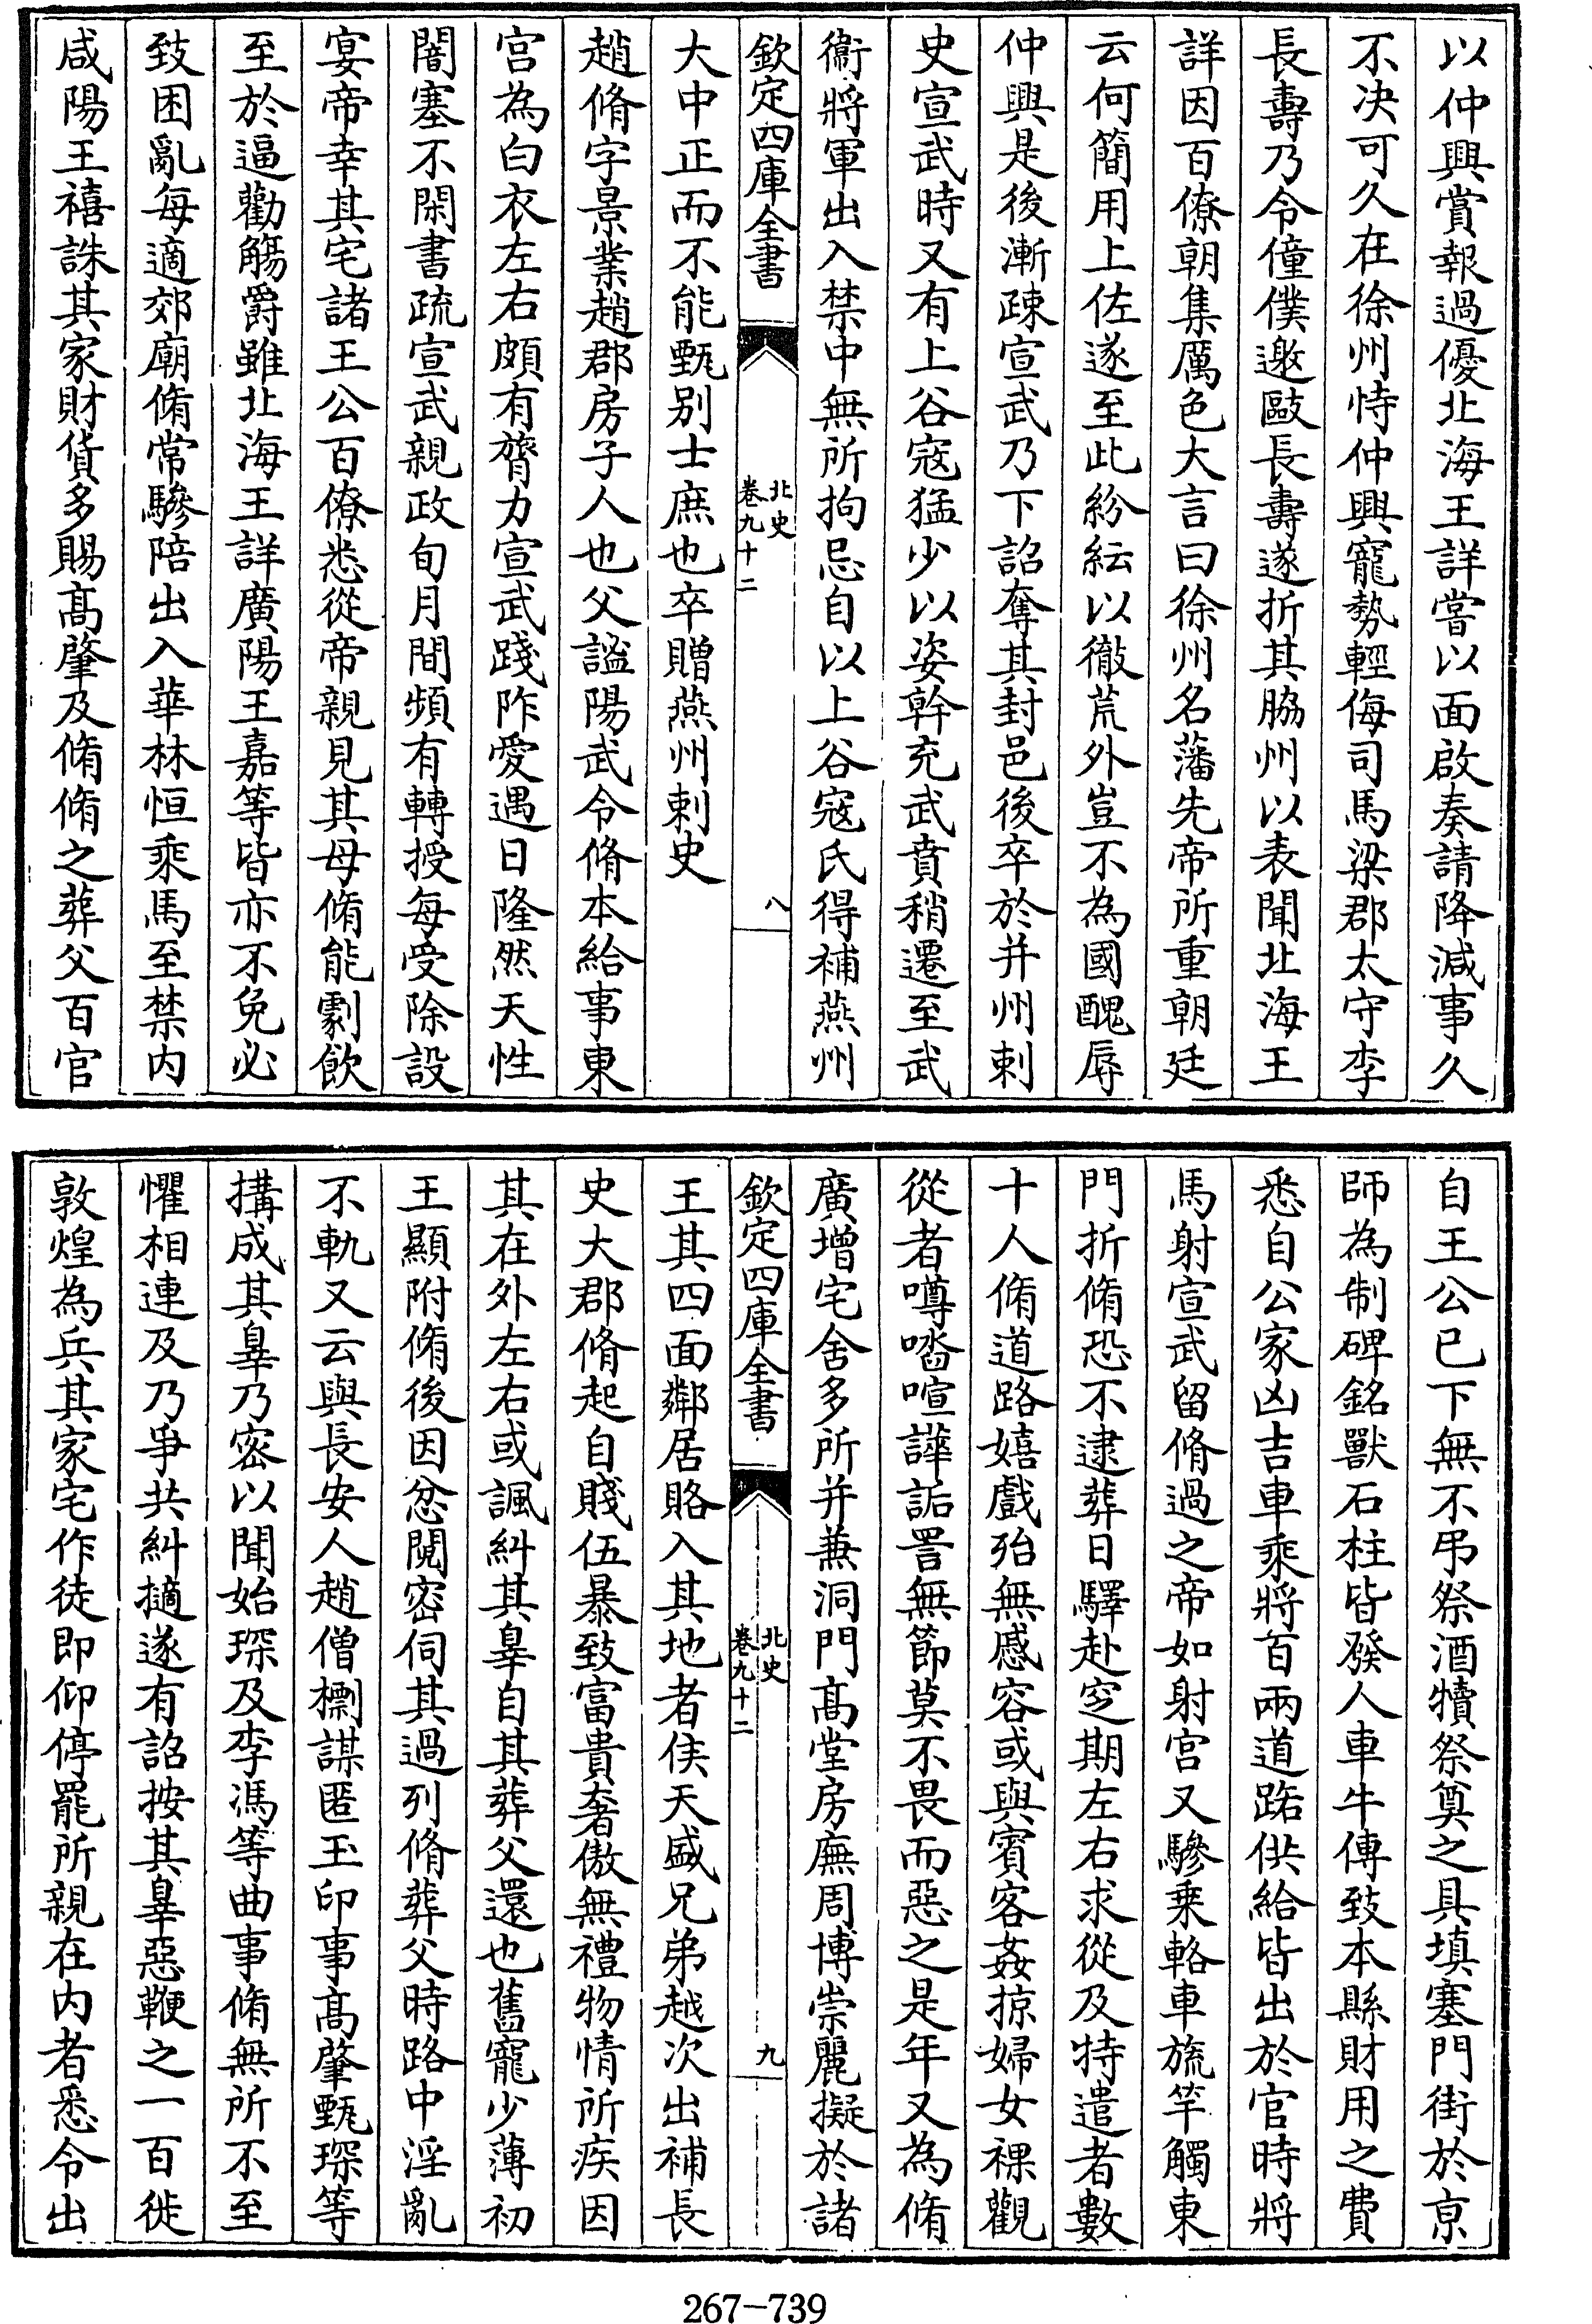 以仲興賞報過優北海王詳嘗以面啟奏請降減事久
不决可久在徐州恃仲興寵勢輕侮司馬梁郡太守李
長壽乃令僮僕邀毆長壽遂折其脇州以表聞北海王
詳因百僚朝集厲色大言曰徐州名藩先帝所重朝廷
云何簡用上佐遂至此紛紜以徹荒外豈不為國醜辱
仲興是後漸疎宣武乃下詔奪其封邑後卒於并州刺
史宣武時又有上谷寇猛少以姿幹充武賁稍遷至武
衞將軍出入禁中無所拘忌自以上谷寇氏得補燕州
欽定四庫全書
北史
卷九十二
八
大中正而不能甄别士庶也卒贈燕州刺史
趙脩字景業趙郡房子人也父謐陽武令脩本給事東
宫為白衣左右頗有膂力宣武踐阼愛遇日隆然天性
闇塞不閑書疏宣武親政旬月間頻有轉授每受除設
宴帝幸其宅諸王公百僚悉從帝親見其母脩能劇飲
至於逼勸觴爵雖北海王詳廣陽王嘉等皆亦不免必
致困亂每適郊廟脩常驂陪出入華林恒乘馬至禁内
咸陽王禧誅其家財貨多賜高肇及脩脩之葬父百官
自王公已下無不弔祭酒犢祭奠之具填塞門街於京
師為制碑銘獸石柱皆發人車牛傳致本縣財用之費
悉自公家凶吉車乘將百兩道路供給皆出於官時將
馬射宣武留脩過之帝如射宫又驂乗輅車旒竿觸東
門折脩恐不逮葬日驛赴窆期左右求從及特遣者數
十人脩道路嬉戲殆無慼容或與賓客姦掠婦女裸觀
從者噂𠴲喧譁詬詈無節莫不畏而惡之是年又為脩
廣增宅舍多所并兼洞門高堂房廡周博崇麗擬於諸
欽定四庫全書
北史
卷九十二
九
王其四面鄰居賂入其地者侯天盛兄弟越次出補長
史大郡脩起自賤伍暴致富貴奢傲無禮物情所疾因
其在外左右或諷糾其辠自其葬父還也舊寵少薄初
王顯附脩後因忿鬩密伺其過列脩葬父時路中淫亂
不軌又云與長安人趙僧㯹謀匿玉印事高肇甄琛等
搆成其辠乃密以聞始琛及李馮等曲事脩無所不至
懼相連及乃爭共糾擿遂有詔按其辠惡鞭之一百徙
敦煌為兵其家宅作徒即仰停罷所親在内者悉令出
267-739